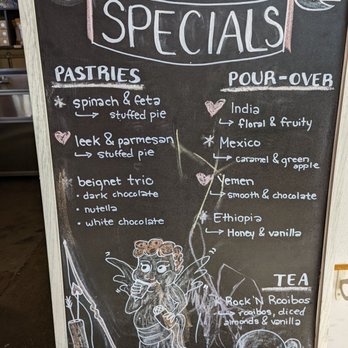 SPECIALS
PASTRIES
spinach & feta
stuffed pie
leek & parmesan
stuffed pie
beignet trio
• dark chocolate
• nutella
• white chocolate
POUR-OVER
India
floral & fruity
Mexico
caramel & green
apple
Yemen
smooth & chocolate
Ethiopia
Honey & vanilla
TEA
Rock 'N Rooibos
rooibos, diced
almonds & vanilla